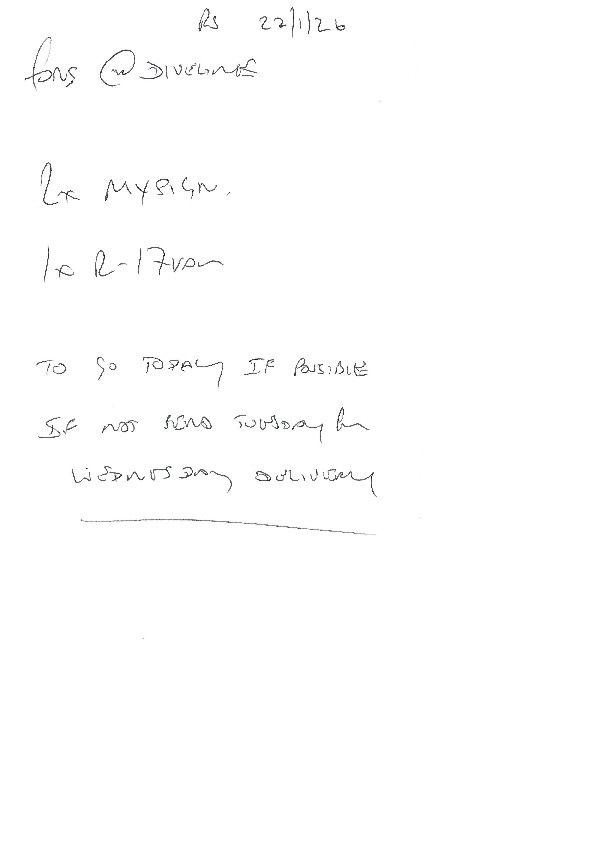 RS 22/1/26
@ DIVELINE
2x MYSIGN.
1x R-17
TO GO TODAY IF POSSIBLE
IF NOT SEND TUESDAY for
WEDNESDAY DELIVERY